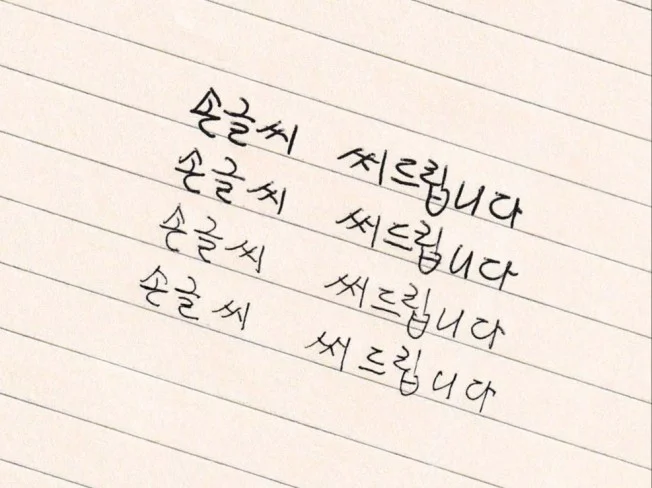 손글씨 써드립니다
손글씨 써드립니다
손글씨 써드립니다
손글씨 써드립니다